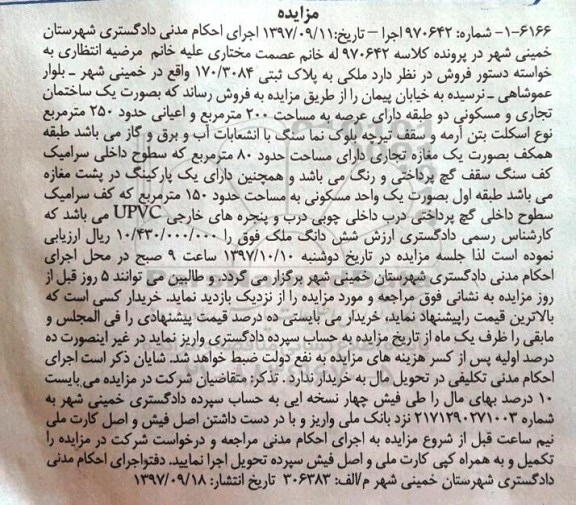 مزایده
۶۱۶۶-۱- شماره: ۹۷۰۶۴۲ اجرا – تاریخ:۱۳۹۷/۰۹/۱۱ اجرای احکام مدنی دادگستری شهرستان
خمینی شهر در پرونده کلاسه ۹۷۰۶۴۲ له خانم عصمت مختاری علیه خانم مرضیه انتظاری به
خواسته دستور فروش در نظر دارد ملکی به پلاک ثبتی ۱۷۰/۳۰۸۴ واقع در خمینی شهر ـ بلوار
عموشاهی ـ نرسیده به خیابان پیمان را از طریق مزایده به فروش رساند که بصورت یک ساختمان
تجاری و مسکونی دو طبقه دارای عرصه به مساحت ۲۰۰ مترمربع و اعیانی حدود ۲۵۰ مترمربع
نوع اسکلت بتن آرمه و سقف تیرچه بلوک نما سنگ با انشعابات آب و برق و گاز می باشد طبقه
همکف بصورت یک مغازه تجاری دارای مساحت حدود ۸۰ مترمربع که سطوح داخلی سرامیک
کف سنگ سقف گچ پرداختی و رنگ می باشد و همچنین دارای یک پارکینگ در پشت مغازه
می باشد طبقه اول بصورت یک واحد مسکونی به مساحت حدود ۱۵۰ مترمربع که کف سرامیک
سطوح داخلی گچ پرداختی درب داخلی چوبی درب و پنجره های خارجی UPVC می باشد که
کارشناس رسمی دادگستری ارزش شش دانگ ملک فوق را ۱۰/۴۳۰/۰۰۰/۰۰۰ ریال ارزیابی
نموده است لذا جلسه مزایده در تاریخ دوشنبه ۱۳۹۷/۱۰/۱۰ ساعت ۹ صبح در محل اجرای
احکام مدنی دادگستری شهرستان خمینی شهر برگزار می گردد و طالبین می توانند ۵ روز قبل از
روز مزایده به نشانی فوق مراجعه و مورد مزایده را از نزدیک بازدید نماید. خریدار کسی است که
بالاترین قیمت راپیشنهاد نماید، خریدار می بایستی ده درصد قیمت پیشنهادی را فی المجلس و
مابقی را ظرف یک ماه از تاریخ مزایده به حساب سپرده دادگستری واریز نماید در غیر اینصورت ده
درصد اولیه پس از کسر هزینه های مزایده به نفع دولت ضبط خواهد شد. شایان ذکر است اجرای
احکام مدنی تکلیفی در تحویل مال به خریدار ندارد . تذکر: متقاضیان شرکت در مزایده می بایست
۱۰ درصد بهای مال را طی فیش چهار نسخه ایی به حساب سپرده دادگستری خمینی شهر به
شماره ۲۱۷۱۲۹۰۲۷۱۰۰۳ نزد بانک ملی واریز و با در دست داشتن اصل فیش و اصل کارت ملی
نیم ساعت قبل از شروع مزایده به اجرای احکام مدنی مراجعه و درخواست شرکت در مزایده را
تکمیل و به همراه کپی کارت ملی و اصل فیش سپرده تحویل اجرا نمایید. دفتواجرای احکام مدنی
دادگستری شهرستان خمینی شهر م/الف: ۳۰۶۳۸۳ تاریخ انتشار: ۱۳۹۷/۰۹/۱۸